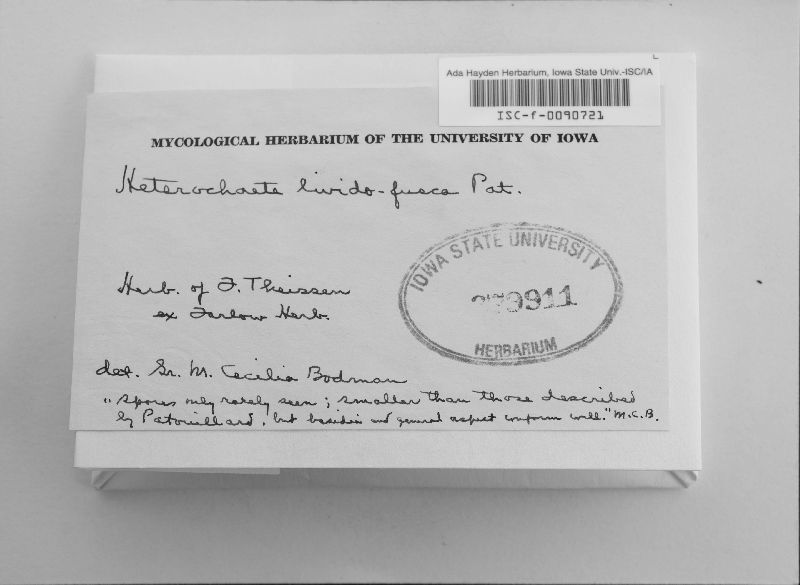 Ada Hayden Herbarium, Iowa State Univ.-ISC/IA
ISC-f-0090721
MYCOLOGICAL HERBARIUM OF THE UNIVERSITY OF IOWA
Heterochaete livido-fusca Pat.
IOWA STATE UNIVERSITY
9911
HERBARIUM
Herb. of F. Theissen
ex Farlow Herb.
det. Sr. M. Cecilia Bodman
"Spores only rarely seen; smaller than those described
by Patouillard, but basidia and general aspect conform well." M.C.B.